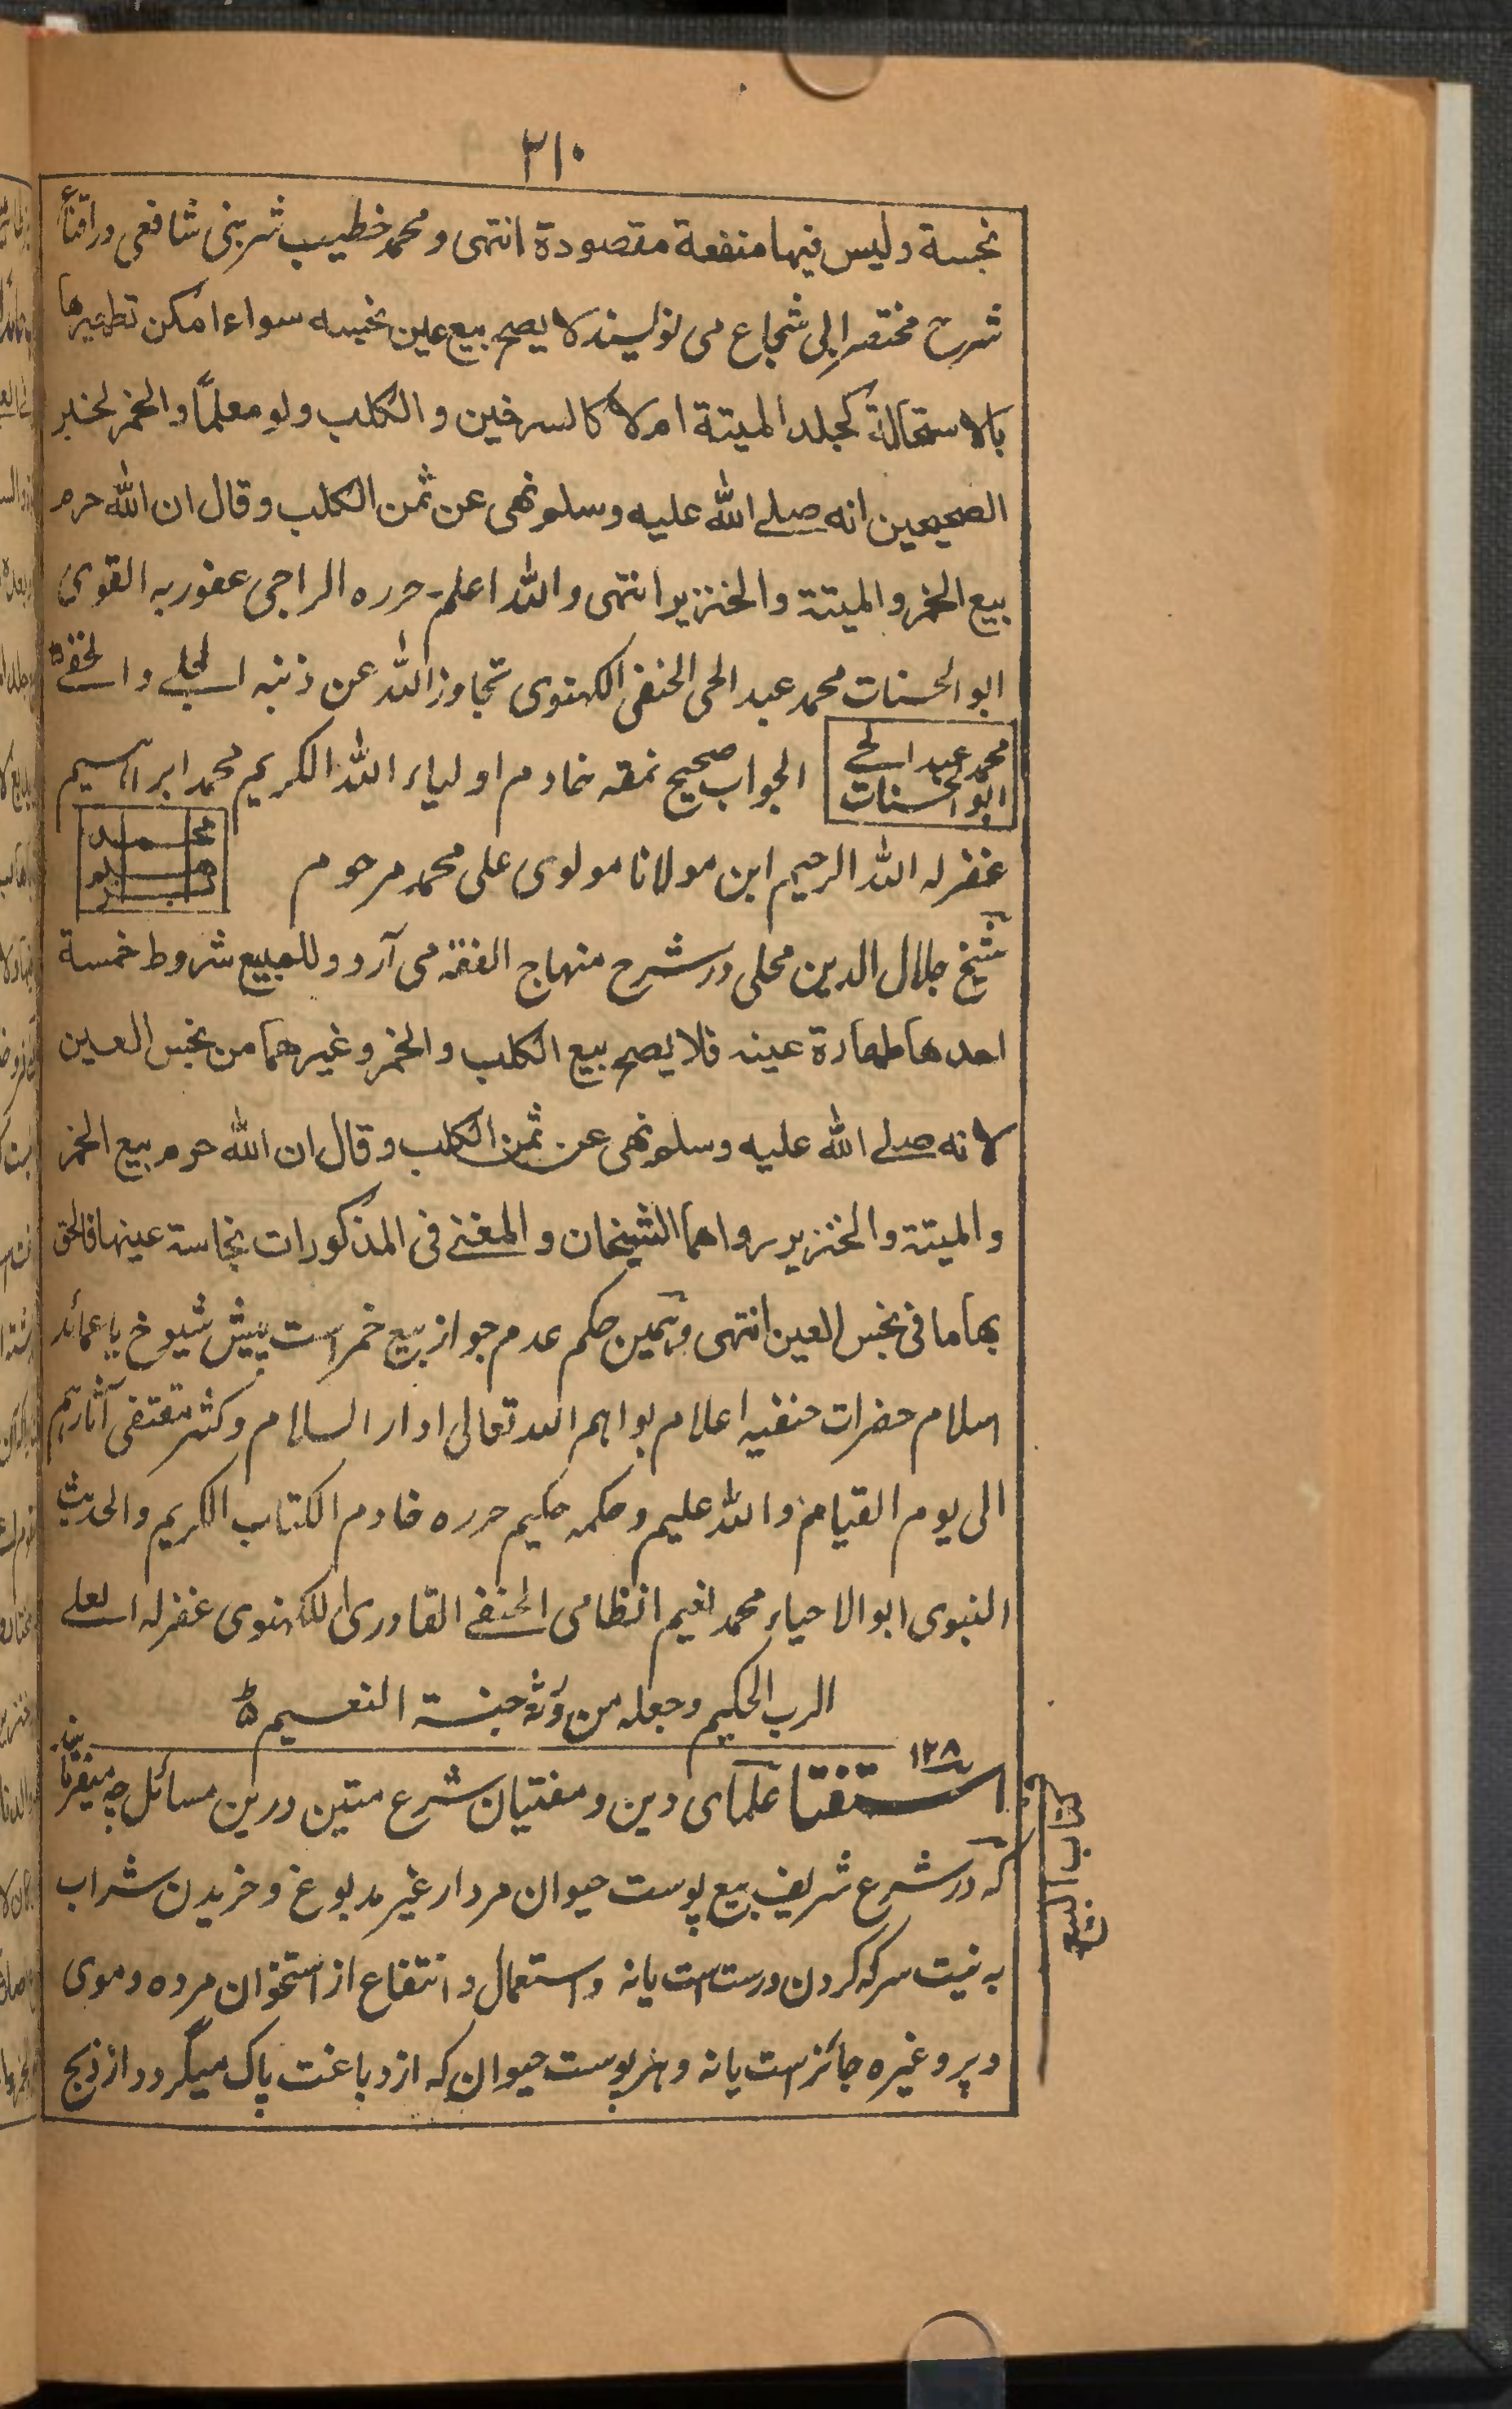 ۳۱۰
نجسة وليس فيها منفعة مقصودة انتهى ومحمد خطيب شربينى شافعى در اقناع
شرح مختصر ابى شجاع مى نويسند لا يصح بيع عين نجسه سواء امكن تطهيرها
بالاستحالة كجلد الميتة ام لا كالسرخين والكلب ولو معلمًا والخمر لخبر
الصحيحين انه صلے الله عليه وسلم نهى عن ثمن الكلب وقال ان الله حرم
بيع الخمر والميتة والخنزير انتهى والله اعلم۔ حرره الراجى عفو ربه القوى
ابو الحسنات محمد عبد الحى الحنفى اللكهنوى تجاوز الله عن ذنبه الجلے والخفے
محمد عبد الحے ابو الحسنات
الجواب صحيح نمقه خادم اولياء الله الكريم محمد ابراہيم
غفر له الله الرحيم ابن مولانا مولوى على محمد مرحوم
شيخ جلال الدين محلى در شرح منهاج الفقه مى آرد و للمبيع شروط خمسة
احدها طهارة عينه فلا يصح بيع الكلب والخمر وغيرهما من نجس العين
لانه صلے الله عليه وسلم نهى عن ثمن الكلب وقال ان الله حرم بيع الخمر
والميتة والخنزير رواهما الشيخان والمغنے فى المذكورات نجاسة عينها فالحق
بها ما فى نجس العين انتهى وہمين حكم عدم جواز بيع خمر است پيش شيوخ يا عمائد
اسلام حضرات حنفيہ اعلام بواہم الله تعالى ادار السلام وكثر مقتفى آثارہم
الى يوم القيامة والله عليم وحكمه حكيم حرره خادم الكتاب الكريم والحديث
النبوى ابو الاحياء محمد نعيم انظامى الحنفے القادرى اللكهنوى غفر له العلے
الرب الحكيم وجعله من ورثة جنة النعيم
۱۲۸
استفتا علماى دين ومفتيان شرع متين درين مسائل چہ ميفرمايند
كہ در شرع شريف بيع پوست حيوان مردار غير مدبوغ وخريدن شراب
بہ نيت سركہ كردن درست است يا نہ واستعمال و انتفاع از استخوان مرده وموى
و پر وغيره جائزست يا نہ وہر پوست حيوان كہ از دباغت پاك ميگردد از ذبح
كتاب البيع